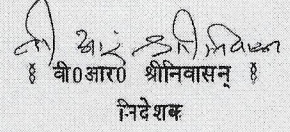 वी आर श्रीनिवासन
§ वी0आर0 श्रीनिवासन् §
निदेशक